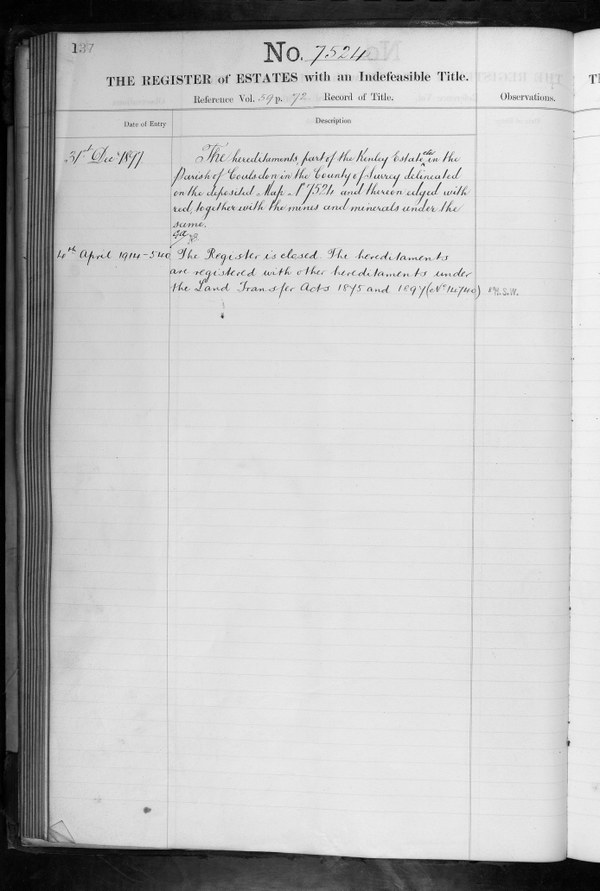 137
No. 7524
THE REGISTER of ESTATES with an Indefeasible Title.
Reference Vol. 59 p. 72 Record of Title.
Observations.
Date of Entry
Description
31st Dec 1877
The hereditaments, part of the Kenley Estate in the
Parish of Coulsdon in the County of Surrey delineated
on the deposited Map No 7524 and thereon edged with
red, together with the mines and minerals under the
same.
4th April 1914-540
The Register is closed. The hereditaments
are registered with other hereditaments under
the Land Transfer Acts 1875 and 1897